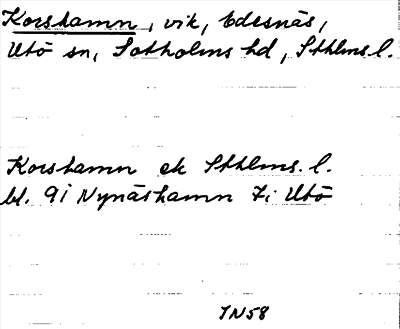 Korshamn, vik, Edesnäs,
Utö sn, Sotholms hd, Sthlms l.
Korshamn ek Sthlms. l.
bl. 9i Nynäshamn 7i Utö
IN58